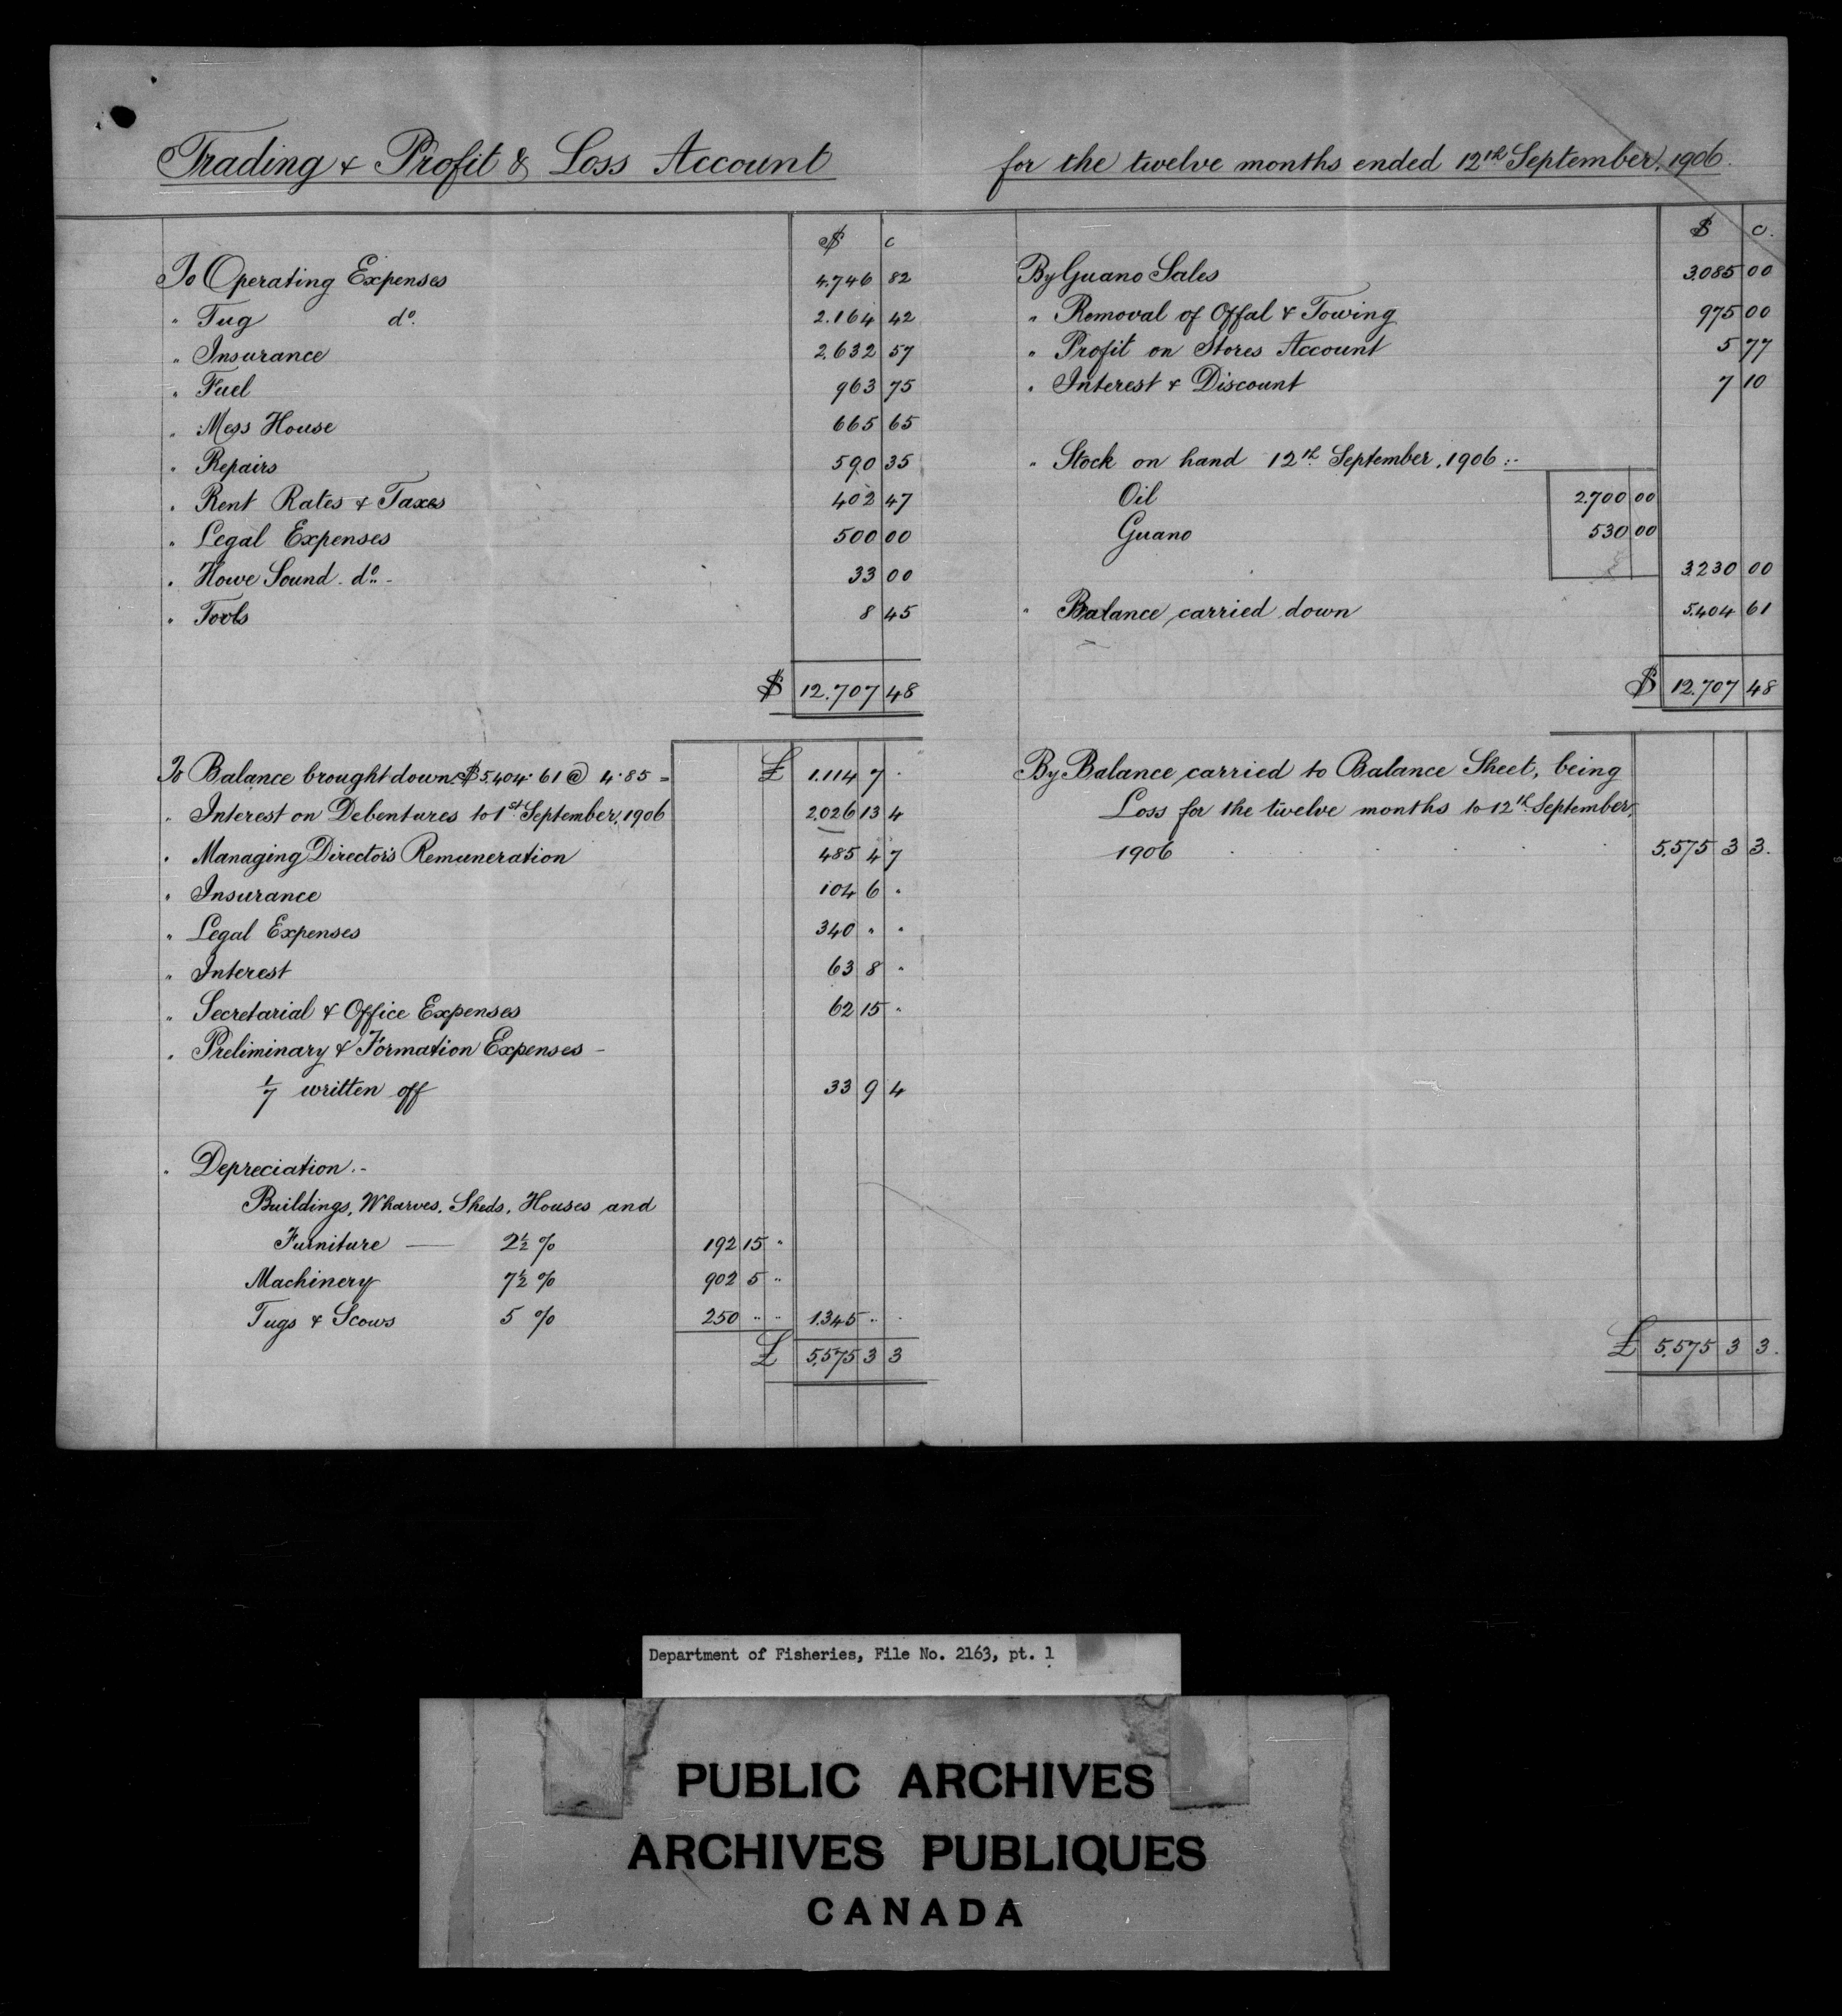 Trading & Profit & Loss Account for the twelve months ended 12th September, 1906.
$ c
To Operating Expenses 4.746 82
" Tug do. 2.164 42
" Insurance 2.632 57
" Fuel 963 75
" Mess House 665 65
" Repairs 590 35
" Rent Rates & Taxes 402 47
" Legal Expenses 500 00
" Howe Sound do. - 33 00
" Tools 8 45
$ 12.707 48
$ c.
By Guano Sales 3.085 00
" Removal of Offal & Towing 975 00
" Profit on Stores Account 5 77
" Interest & Discount 7 10
" Stock on hand 12th September, 1906 :-
Oil 2.700 00
Guano 530 00
3.230 00
" Balance carried down 5.404 61
$ 12.707 48
To Balance brought down $5.404.61 @ 4.85 = £ 1.114 7 .
" Interest on Debentures to 1st September, 1906 2.026 13 4
" Managing Director's Remuneration 485 4 7
" Insurance 104 6 "
" Legal Expenses 340 " "
" Interest 63 8 "
" Secretarial & Office Expenses 62 15 "
" Preliminary & Formation Expenses -
1/7 written off 33 9 4
" Depreciation :-
Buildings, Wharves, Sheds, Houses and
Furniture — 2½ % 192 15 "
Machinery 7½ % 902 5 "
Tugs & Scows 5 % 250 " " 1.345 " "
£ 5.575 3 3
By Balance carried to Balance Sheet, being
Loss for the twelve months to 12th September,
1906 . . . . . 5.575 3 3.
£ 5.575 3 3.
Department of Fisheries, File No. 2163, pt. 1
PUBLIC ARCHIVES
ARCHIVES PUBLIQUES
CANADA